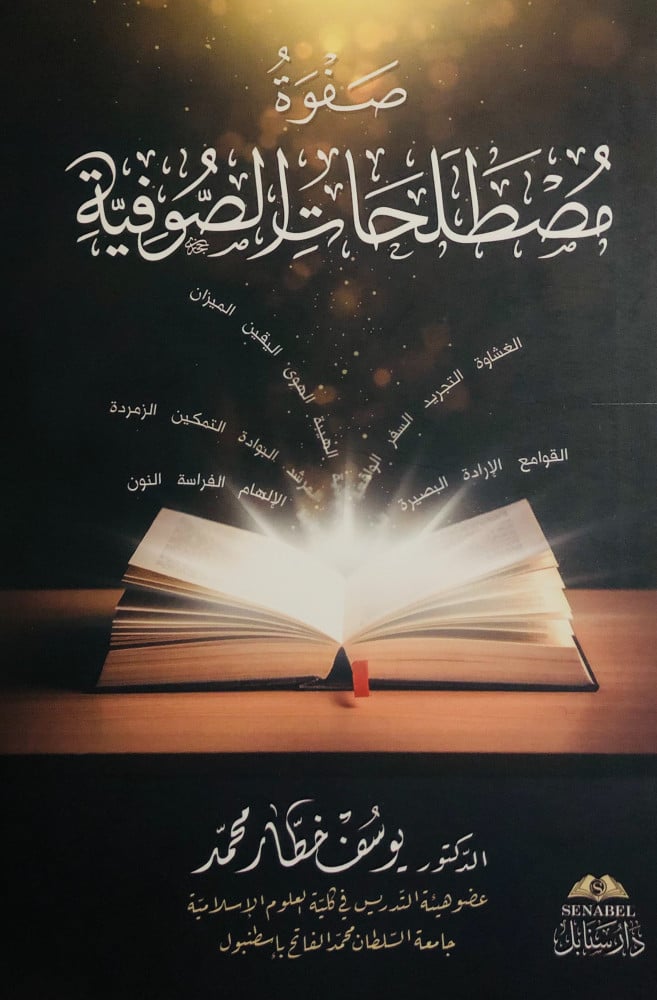 صَفْوَةُ
مُصْطَلَحَاتِ الصُّوفِيَّةِ
الميزان
اليقين
الهوى
الهيبة
الغشاوة
التجريد
السفر
الزمردة
التمكين
البوادة
القوامع
الإرادة
البصيرة
النون
الفراسة
الإلهام
الدكتور يوسُف خطّار محمّد
عضو هيئة التدريس في كلية العلوم الإسلامية
جامعة السلطان محمد الفاتح بإسطنبول
SENABEL
دار سنابل